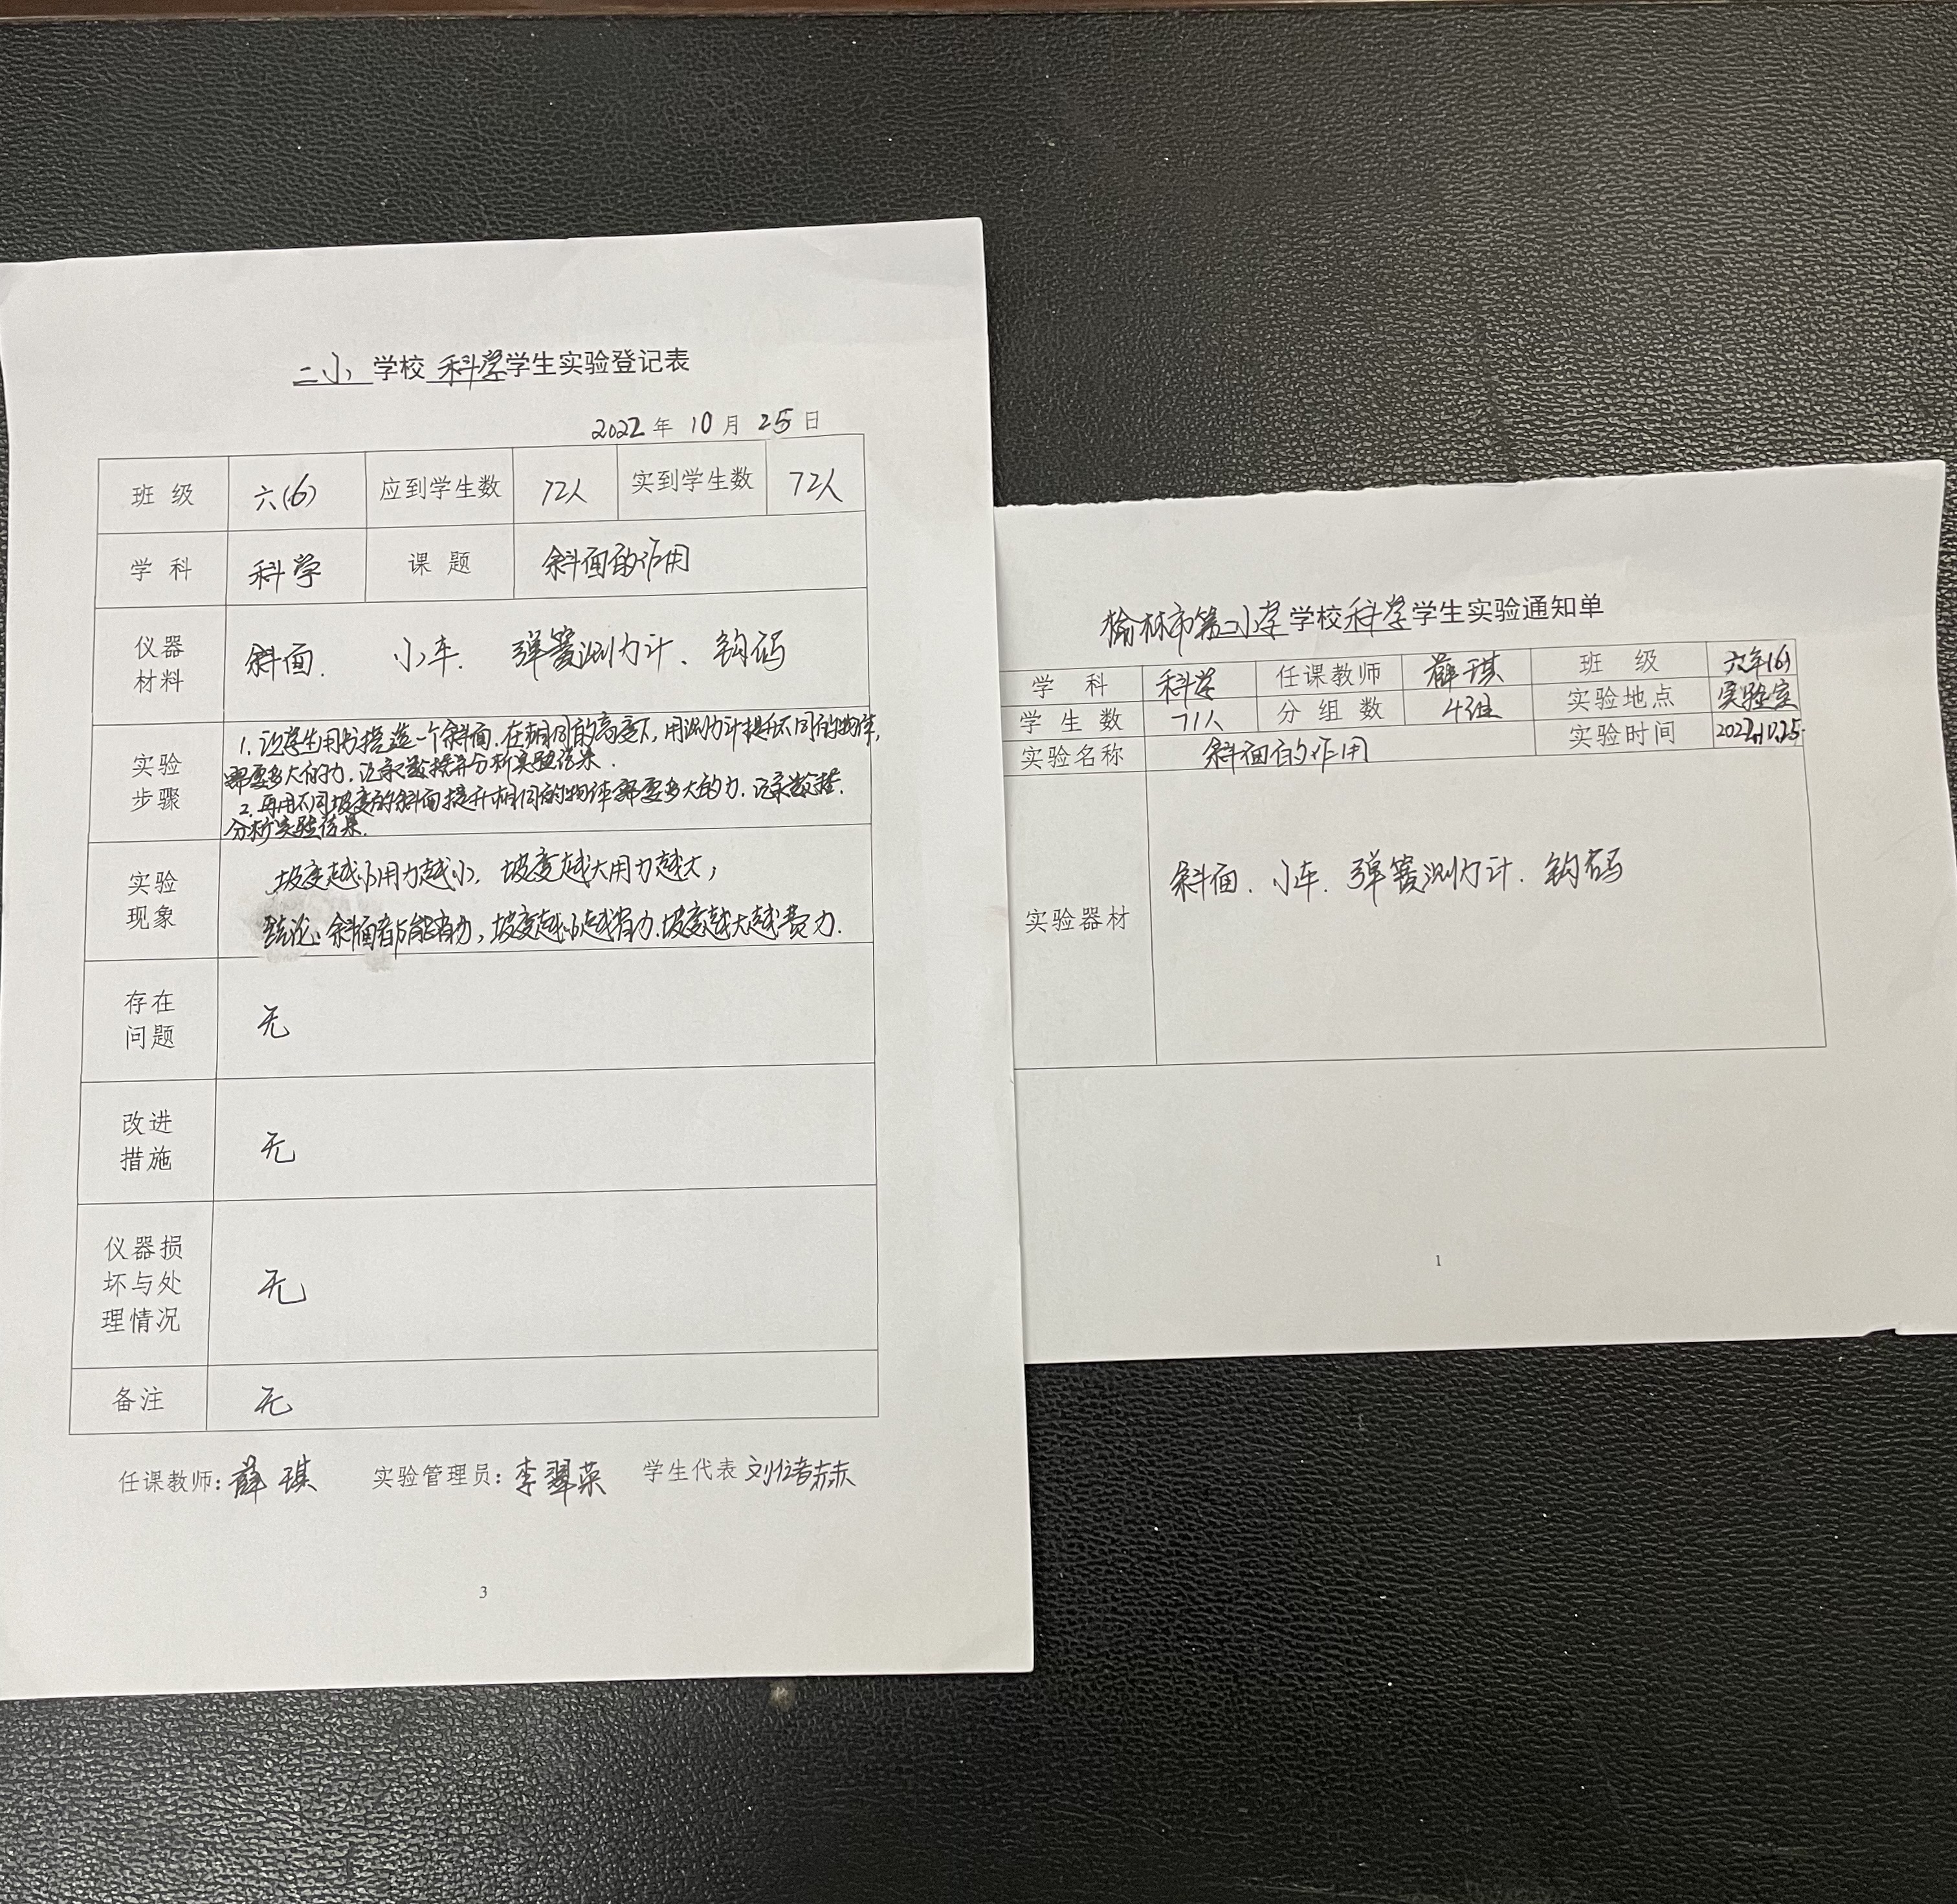 二小 学校 科学 学生实验登记表
2022 年 10 月 25 日
班 级 六(6) 应到学生数 72人 实到学生数 72人
学 科 科学 课 题 斜面的作用
仪器
材料
斜面. 小车. 弹簧测力计、钩码
实验
步骤
1. 让学生用书搭造一个斜面.在相同的高度下,用测力计提升不同的物体,
需要多大的力.记录数据并分析实验结果.
2. 再用不同坡度的斜面提升相同的物体需要多大的力.记录数据.
分析实验结果.
实验
现象
坡度越小用力越小. 坡度越大用力越大;
结论:斜面都能省力,坡度越小越省力.坡度越大越费力.
存在
问题
无
改进
措施
无
仪器损
坏与处
理情况
无
备注 无
任课教师: 薛琪 实验管理员: 李翠荣 学生代表
3
榆林市第二小学 学校 科学 学生实验通知单
学 科 科学 任课教师 薛琪 班 级 六年(6)
学 生 数 71人 分 组 数 4组 实验地点 实验室
实验名称 斜面的作用 实验时间 2022.10.25
实验器材 斜面. 小车. 弹簧测力计. 钩码
1